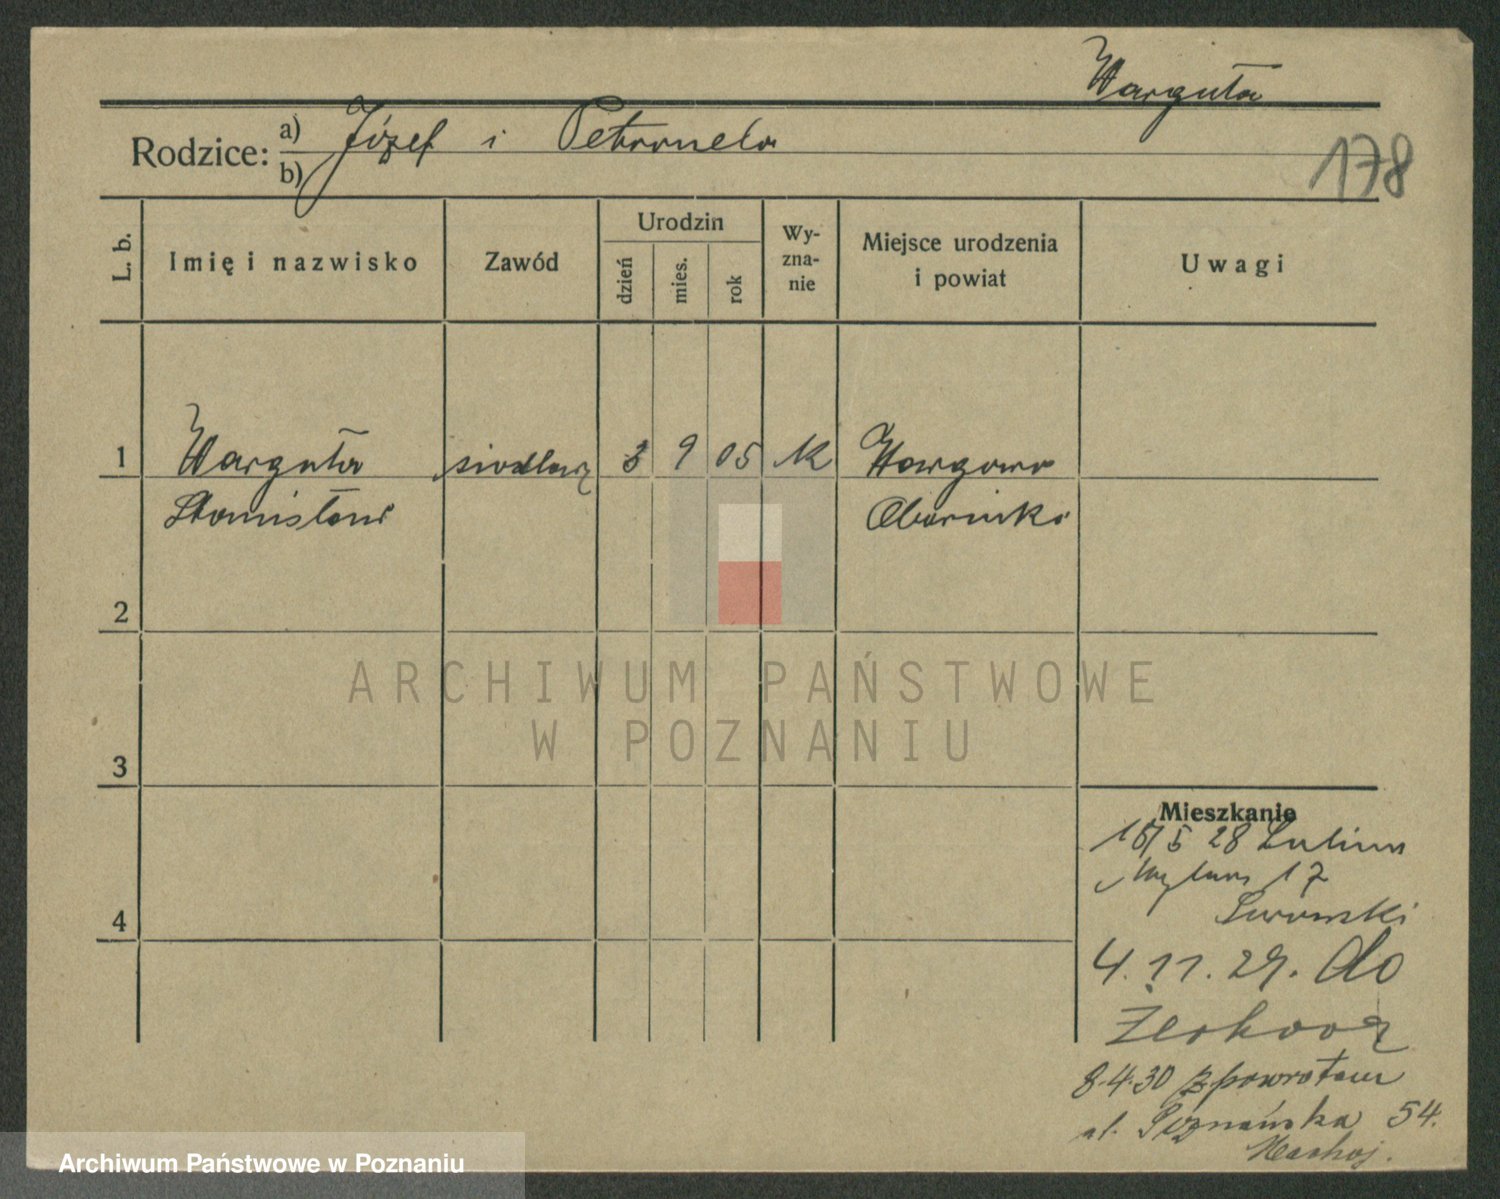 Warguła
Rodzice: a) Józef i Petronela
b)
178
L. b.
Imię i nazwisko
Zawód
Urodzin
dzień
mies.
rok
Wy-
zna-
nie
Miejsce urodzenia
i powiat
Uwagi
1 Warguła siodlarz 3 9 05 k Wargowo
Stanisław Oborniki
2
3
4
ARCHIWUM PAŃSTWOWE
W POZNANIU
Mieszkanie
15/5 28
17
4.11.29. do
Żerkowa
8.4.30 z powrotem
ul. Poznańska 54.
Archiwum Państwowe w Poznaniu